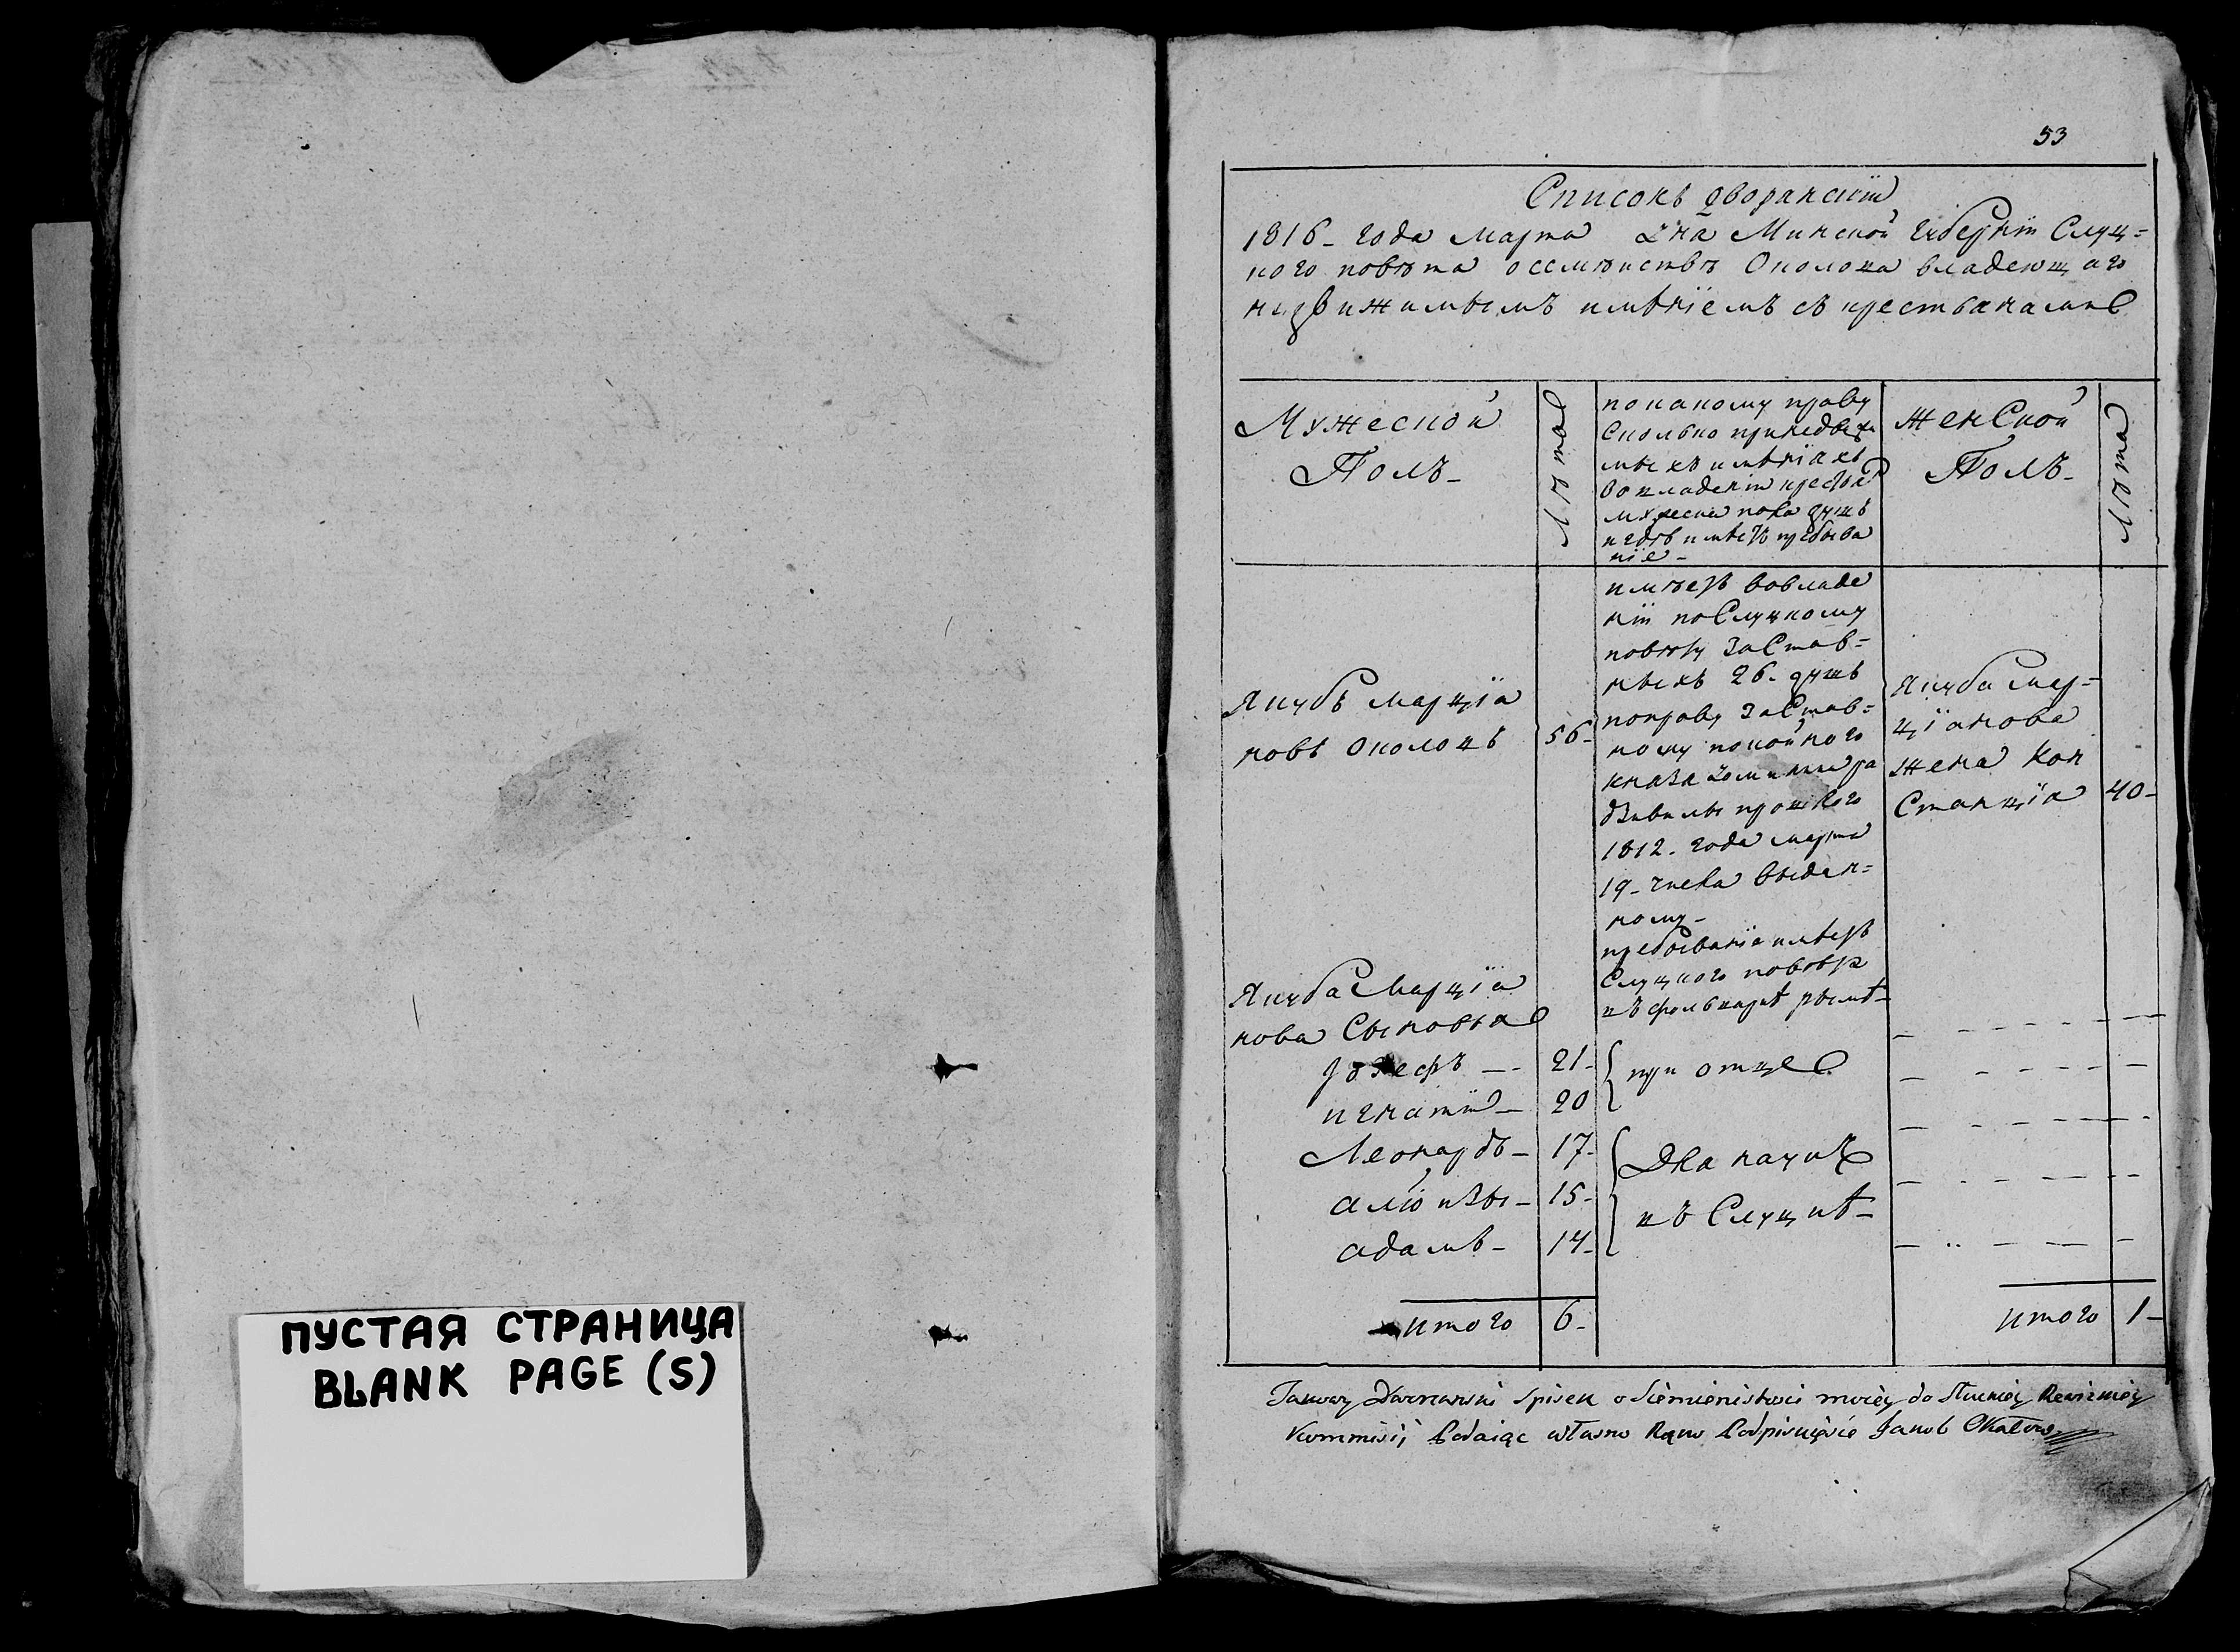 ПУСТАЯ СТРАНИЦА
BLANK PAGE (S)
53
Списокъ дворянскій
1816 - года Марта дня Минской Губерніи Слуц=
кого повѣта о семѣиствѣ Околока владеющаго
недвижимымъ имѣніемъ съ крестьянами
Мужеской
Полъ -
Лѣта
по какому праву
Сколько
мыхъ имѣніяхъ
во владеніи
мужеска пола душъ
и гдѣ имѣетъ пребыва
ніе -
Женской
Полъ -
Лѣта
Якубъ Марціа
новъ Околокъ
56 -
имѣетъ вовладе
ніи по Слуцкому
повѣту Застав=
ныхъ 26 - душъ
поправу Застав=
ному покойного
князя Доминика
1812 - года Марта
19 - числа выдан=
ному -
пребываніе имѣетъ
Слуцкого повѣта
въ фольварке
Якуба Мар=
ціанова
жена Кон
Станція
40 -
Якуба Марціа
нова Сыновья
Іозефъ - -
21 -
при отце
игнатій -
20
Леонардъ -
17 -
Для наукъ
алоизы -
15 -
въ Слуцкѣ -
адамъ -
14 -
итого
6 -
итого
1 -
Spisek o Siemieństwi moiey do Słuckiey Rewizniey
Kommisii Podaiąc własno Ręno Podpisuięsie Jakub